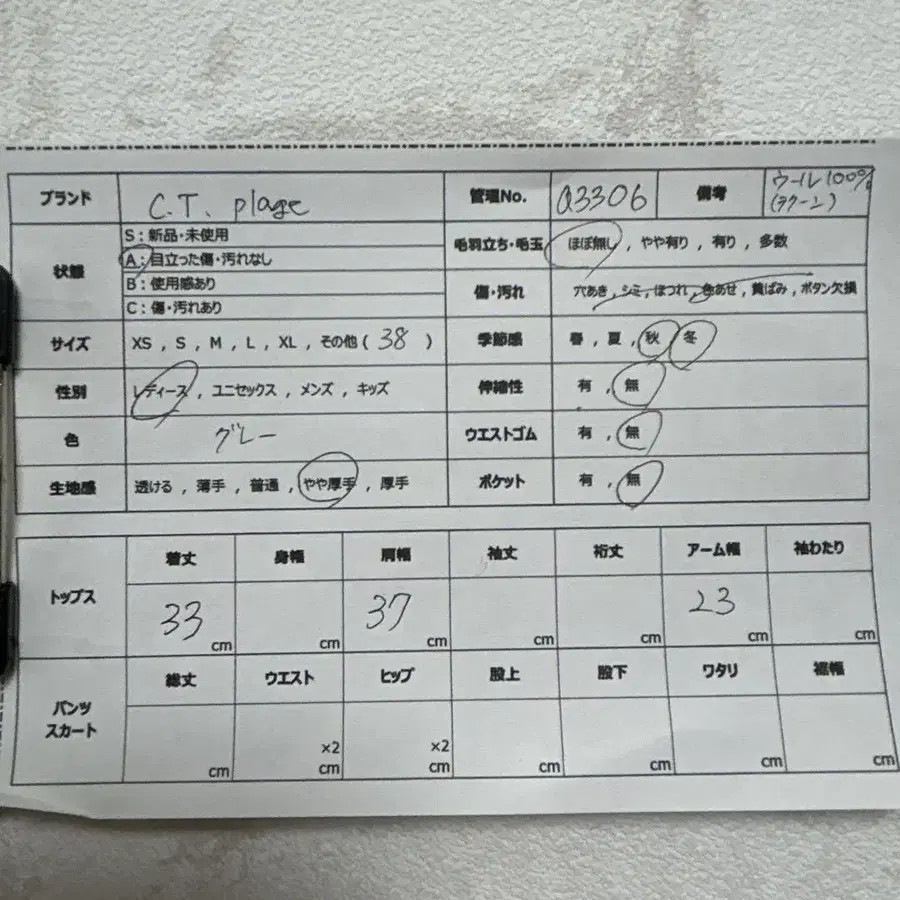 ブランド C.T. plage 管理No. Q3306 備考 ウール100%
(ラクーン)
状態
S:新品・未使用
A:目立った傷・汚れなし
B:使用感あり
C:傷・汚れあり
毛羽立ち・毛玉 ほぼ無し , やや有り , 有り , 多数
傷・汚れ 穴あき , シミ , ほつれ , 色あせ , 黄ばみ , ボタン欠損
サイズ XS , S , M , L , XL , その他 ( 38 ) 季節感 春 , 夏 , 秋 , 冬
性別 レディース , ユニセックス , メンズ , キッズ 伸縮性 有 , 無
色 グレー ウエストゴム 有 , 無
生地感 透ける , 薄手 , 普通 , やや厚手 , 厚手 ポケット 有 , 無
トップス
着丈 身幅 肩幅 袖丈 裄丈 アーム幅 袖わたり
33 cm cm 37 cm cm cm 23 cm cm
パンツ
スカート
総丈 ウエスト ヒップ 股上 股下 ワタリ 裾幅
×2 ×2
cm cm cm cm cm cm cm